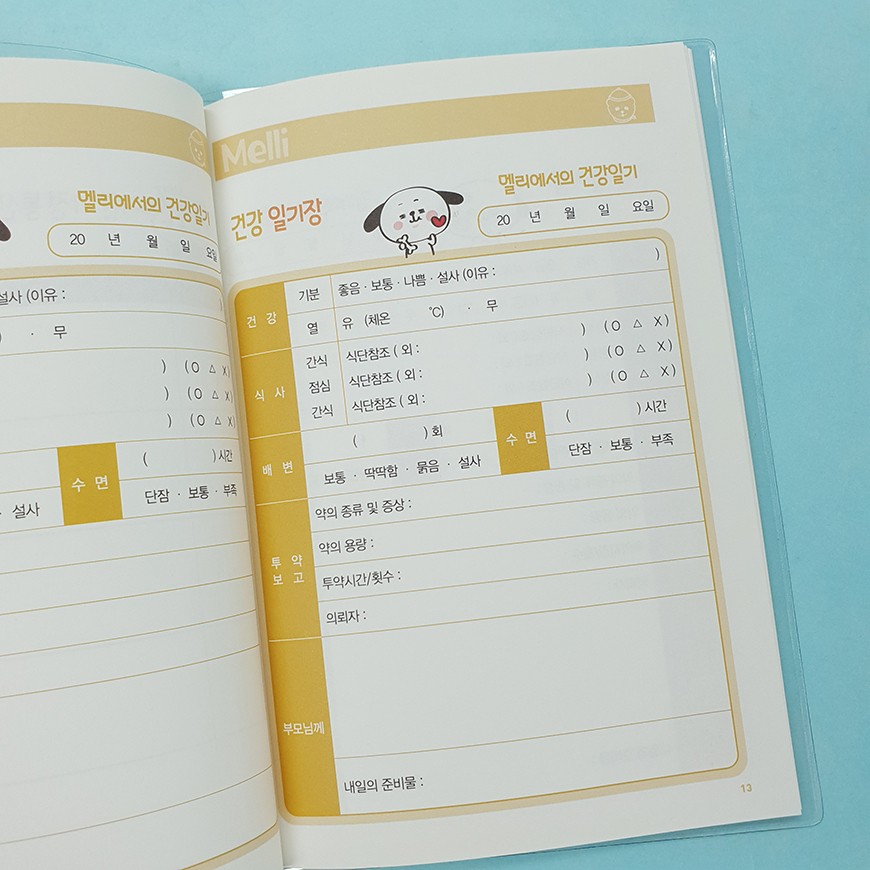 멜리에서의 건강일기
20 년 월 일 요일
설사 (이유 :
) · 무
) ( O △ X )
) ( O △ X )
) ( O △ X )
수 면
( ) 시간
· 설사
단잠 · 보통 · 부족
Melli
건강 일기장
멜리에서의 건강일기
20 년 월 일 요일
건 강
기분
좋음 · 보통 · 나쁨 · 설사 (이유 : )
열
유 (체온 ℃) · 무
식 사
간식
식단참조 ( 외 : ) ( O △ X )
점심
식단참조 ( 외 : ) ( O △ X )
간식
식단참조 ( 외 : ) ( O △ X )
배 변
( ) 회
보통 · 딱딱함 · 묽음 · 설사
수 면
( ) 시간
단잠 · 보통 · 부족
투 약
보 고
약의 종류 및 증상 :
약의 용량 :
투약시간/횟수 :
의뢰자 :
부모님께
내일의 준비물 :
13